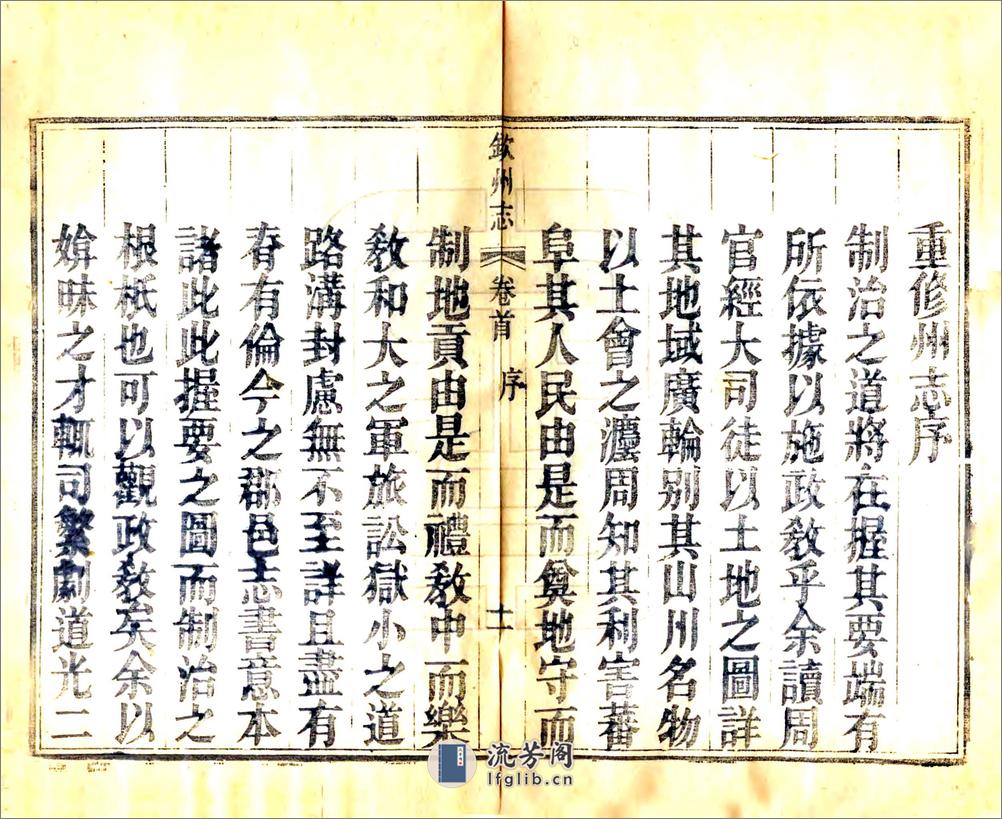 重修州志序
制治之道將在握其要端有
所依據以施政敎乎余讀周
官經大司徒以土地之圖詳
其地域廣輪别其山川名物
以土會之灋周知其利害蕃
阜其人民由是而奠地守而
欽州志 卷首 序 十一
制地貢由是而禮敎中而樂
敎和大之軍旅訟獄小之道
路溝封慮無不至詳且盡有
春有倫今之郡邑志書意本
諸此此握要之圖而制治之
根柢也可以觀政敎矣余以
媕昧之才輒司繁劇道光二
流芳阁
lfglib.cn